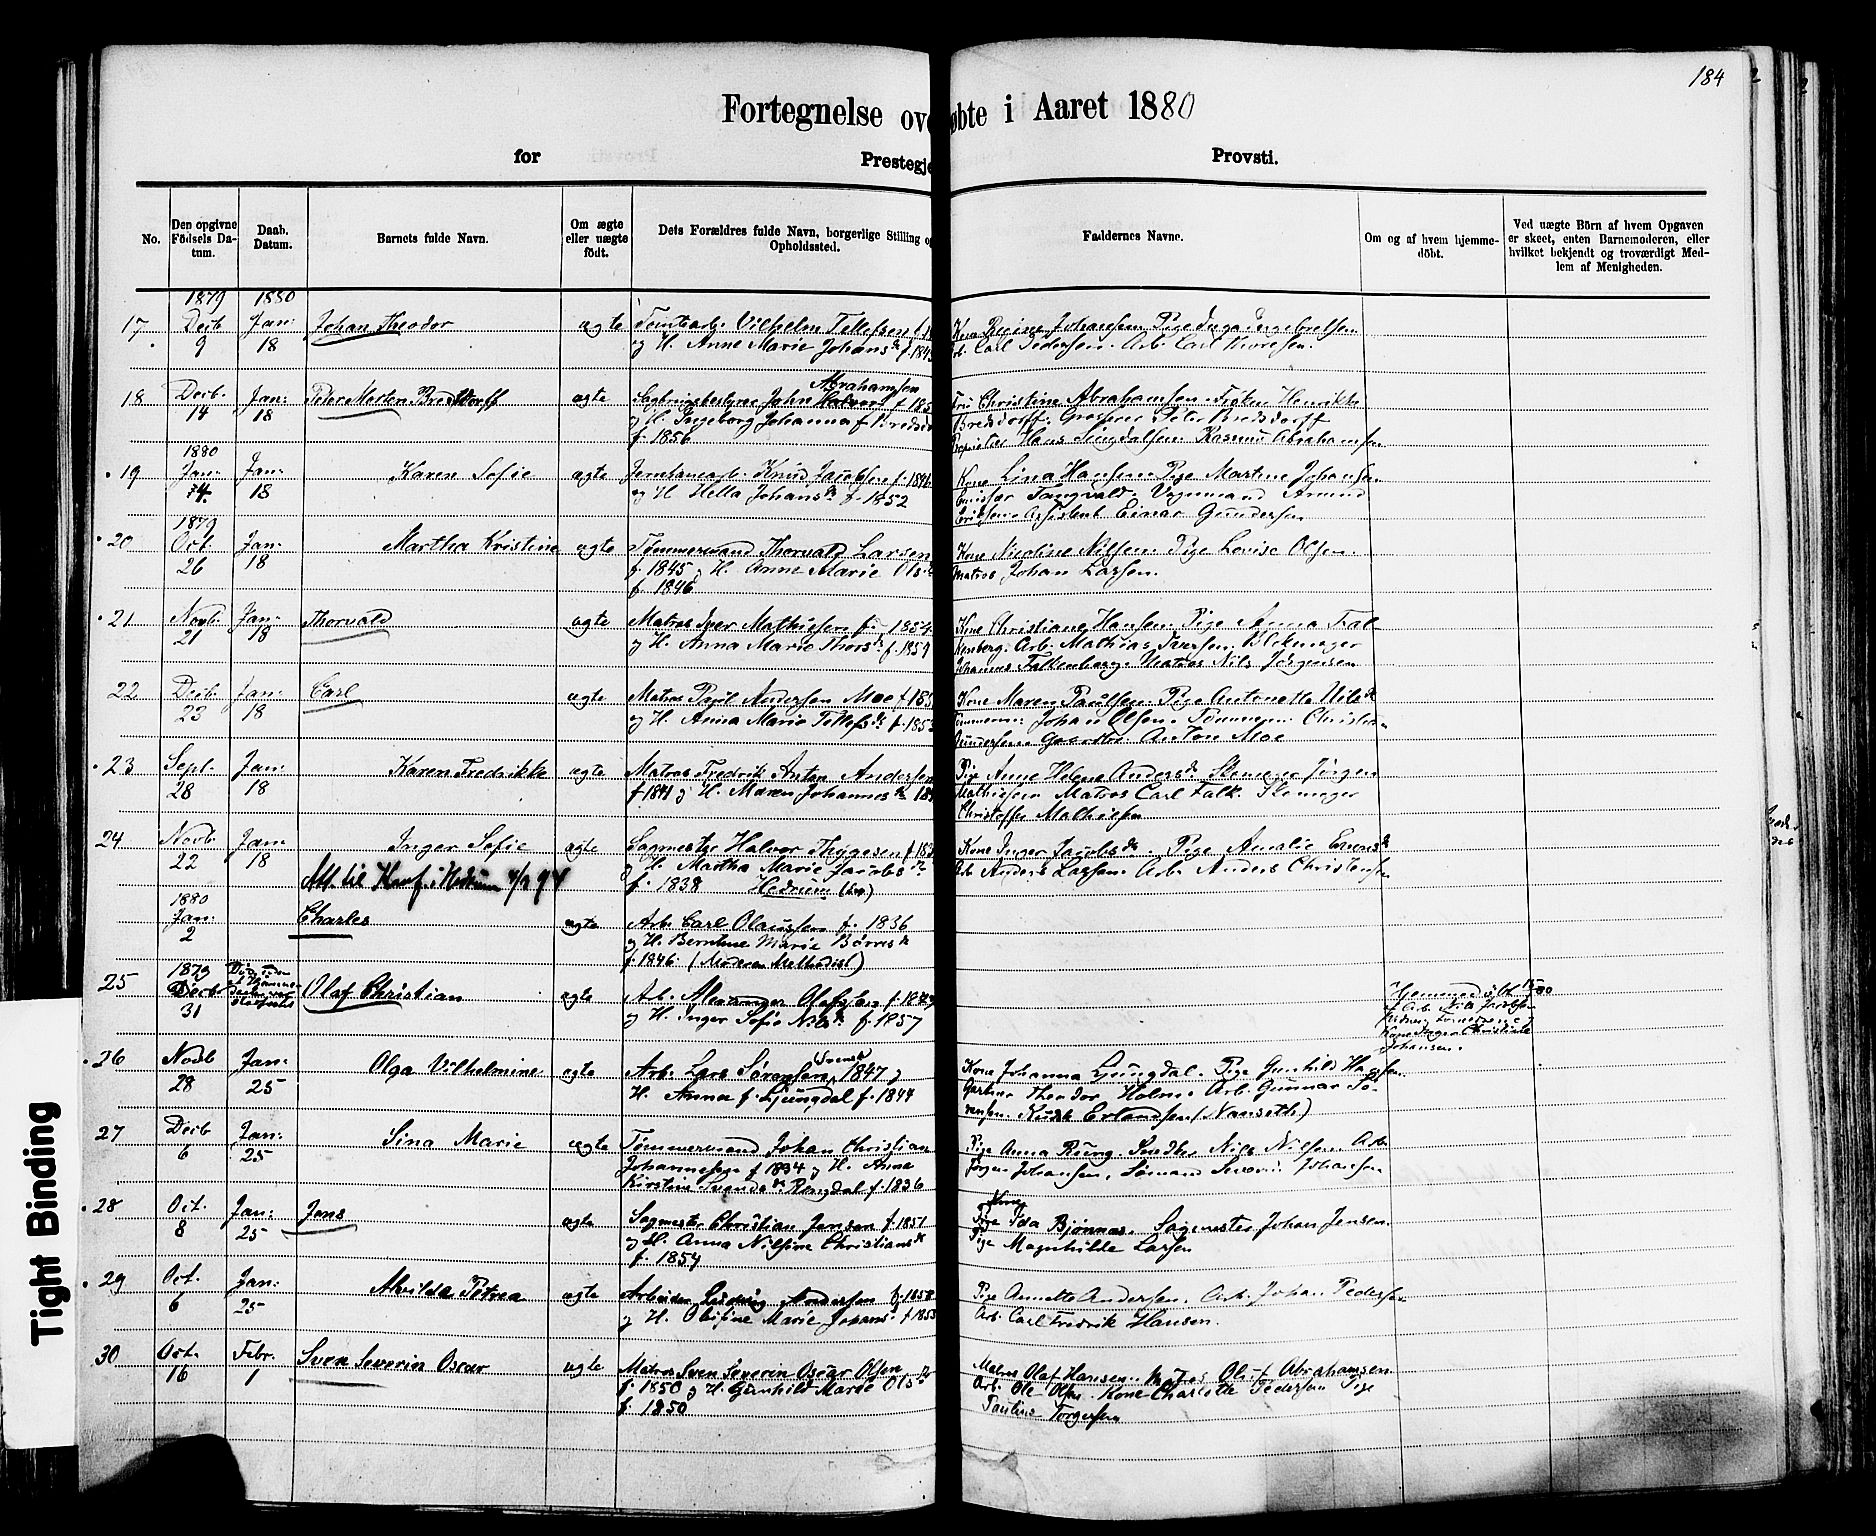 184
Fortegnelse ove øbte i Aaret 1880
for Prestegje Provsti.
No.
Den opgivne Födsels Datum.
Daab. Datum.
Barnets fulde Navn.
Om ægte eller uægte födt.
Dets Forældres fulde Navn, borgerlige Stilling og Opholdssted.
Faddernes Navne.
Om og af hvem hjemmedöbt.
Ved uægte Börn af hvem Opgaven er skeet, enten Barnemoderen, eller hvilket bekjendt og troværdigt Medlem af Menigheden.
1879 1880
17. Decb. 9 Jan. 18 Johan Theodor ægte Tomtearb. Vilhelm Tellefsen
og H. Anne Marie Johansd.
Kone Regine Johansen. Pige Inga Ingebretsen
Arb. Carl Pedersen. Arb. Carl
18 Decb. 14 Jan. 18 Peter Morten Bredsdorff ægte Sagbrugsbestyrer John Abrahamsen
og H. Ingeborg Johanna f.
f. 1856
Fru Christine Abrahamsen. Frøken Henrikke
Bredsdorff. Grosserer Peter Bredsdorff
Hans Abrahamsen
1880
19 Jan. 4. Jan. 18 Karen Sofie ægte Knud Jacobsen
og H. Hella Johansd. f. 1852
Kone Lina Hansen. Pige Martine Johansen
Tangvald. Vognmand Amund
Eriksen. Assistent Einar Gundersen
1879
20 Oct. 26 Jan. 18 Martha Kristine ægte Tømmermand Thorvald Larsen
f. 1845 og H. Anne Marie Ols
f. 1846
Kone Nicoline Nilsen. Pige Lovise Olsen.
Matros Johan Larsen.
21 Novb. 21 Jan. 18 Thorvald ægte Matros Iver Mathissen f. 1854
og H. Anna Marie Thorsd. f. 1859
Kone Christiane Hansen. Pige Anna Fal
kenberg. Arb. Mathias Iversen. Blokmager
Johannes Falkenberg. Matros Nils Jörgensen
22 Decb. 23 Jan. 18 Carl ægte Matros Paul Andersen Moe
og H. Anna Marie Tellefsd.
Kone Maren Paulsen. Pige Antonette Nilsd.
Tömmerm. Johan Olsen. Tömmerm. Christen
Gundersen. Anton Moe
23 Sept. 28 Jan. 18 Karen Fredrikke ægte Matros Fredrik Anton Andersen
f. 1841 og H. Maren Johannesd.
Pige Anne Helene Andersd. Skomager Jörgen
Mathissen Matros Carl Falk. Skomager
Christoffer Mathissen
24 Novb 22 Jan. 18 Inger Sofie ægte Sagmester Halvor Thygesen
og H. Martha Marie Jacobsd.
f. 1838 Hedrum
Kone Inger Jacobsd. Pige Amalie
Arb. Anders Larsen. Arb. Anders Christensen
Att. til Konf. i Hedrum 4/9 94
1880
Jan. 2 Charles ægte Arb. Carl Olaussen f. 1836
og H. Berntine Marie
f. 1846. (Moderen Methodist)
1879
25 Decb 31 Olaf Christian ægte Arb. Olafsen
og H. Inger Sofie Nilsd. f. 1857
Kone Inger Christiane
Johansen.
26 Novb 28 Jan. 25 Olga Vilhelmine ægte Arb. Lars Sörensen (Svensk) 1847 og
H. Anna f. Ljungdal f. 1844
Kone Johanna Ljungdal. Pige Gunhild Hansen.
Gartner Theodor Holm. Arb. Gunnar Sö
rensen. Erlandsen (Nanseth)
27 Decb 6 Jan. 25 Sina Marie ægte Tømmermand Johan Christian
Johannesen f. 1834 og H. Anna
Kirstine Svendsd. Röngdal f. 1836
Pige Anna Nils Nilsen Arb.
Jørgen Johansen. Sömand Severin Johansen
28 Oct. 8 Jan. 25 Jens ægte Sagmester Christian Jensen f. 1851
og H. Anna Nilsine Christiansd.
f. 1854
Ida Bjønnes. Sagmester Johan Jensen.
Pige Magnhilde Larsen
29 Oct. 6 Jan. 25 Alvilda Petrea ægte Arbeider Ludvig Andersen f. 1858
og H. Olufine Marie Johansd. f. 1853
Pige Annette Andersen. Arb. Johan Pedersen
Arb. Carl Fredrik Hansen.
30 Oct. 16 Febr. 1 Sven Severin Oscar ægte Matros Sven Severin Oscar Olsen
f. 1850 og H. Gunhild Marie Olsd.
f. 1850
Matros Olaf Hansen. Matros Oluf Abrahamsen
Arb. Ole Olsen. Kone Charlotte Pedersen Pige
Pauline Torgersen
Tight Binding